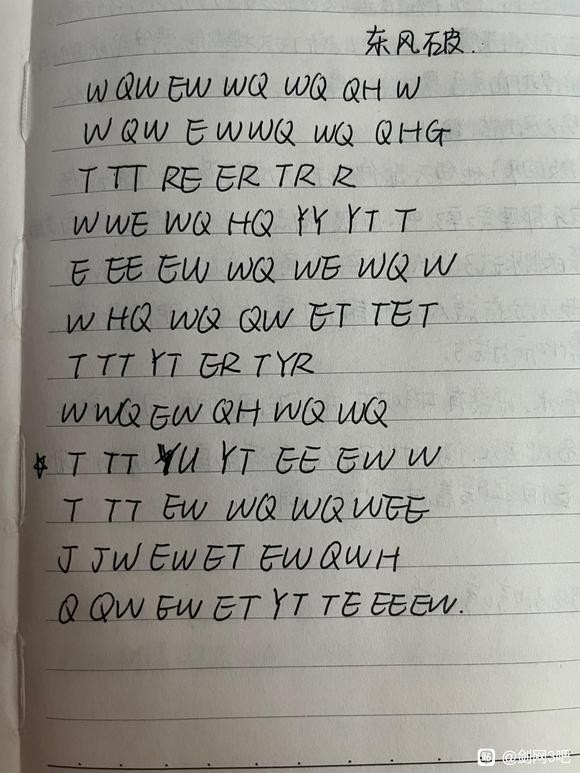 东风破.
W QW EW WQ WQ QH W
W QW E WWQ WQ QHG
T TT RE ER TR R
WWE WQ HQ YY YT T
E EE EW WQ WE WQ W
W HQ WQ QW ET TET
T TT YT ER TYR
WWQ EW QH WQ WQ
☆ T TT YU YT EE EW W
T TT EW WQ WQ WEE
J JW EW ET EW QWH
Q QW EW ET YT TE EEEW.
贴 @剑网3吧